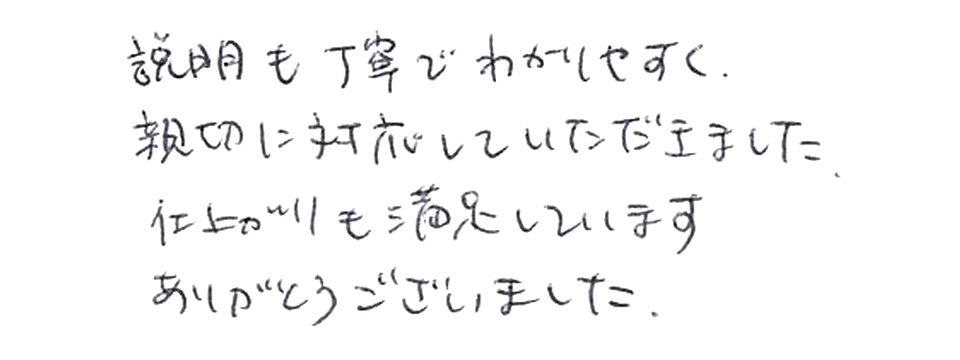 説明も丁寧でわかりやすく.
親切に対応していただきました.
仕上がりも満足しています
ありがとうございました.